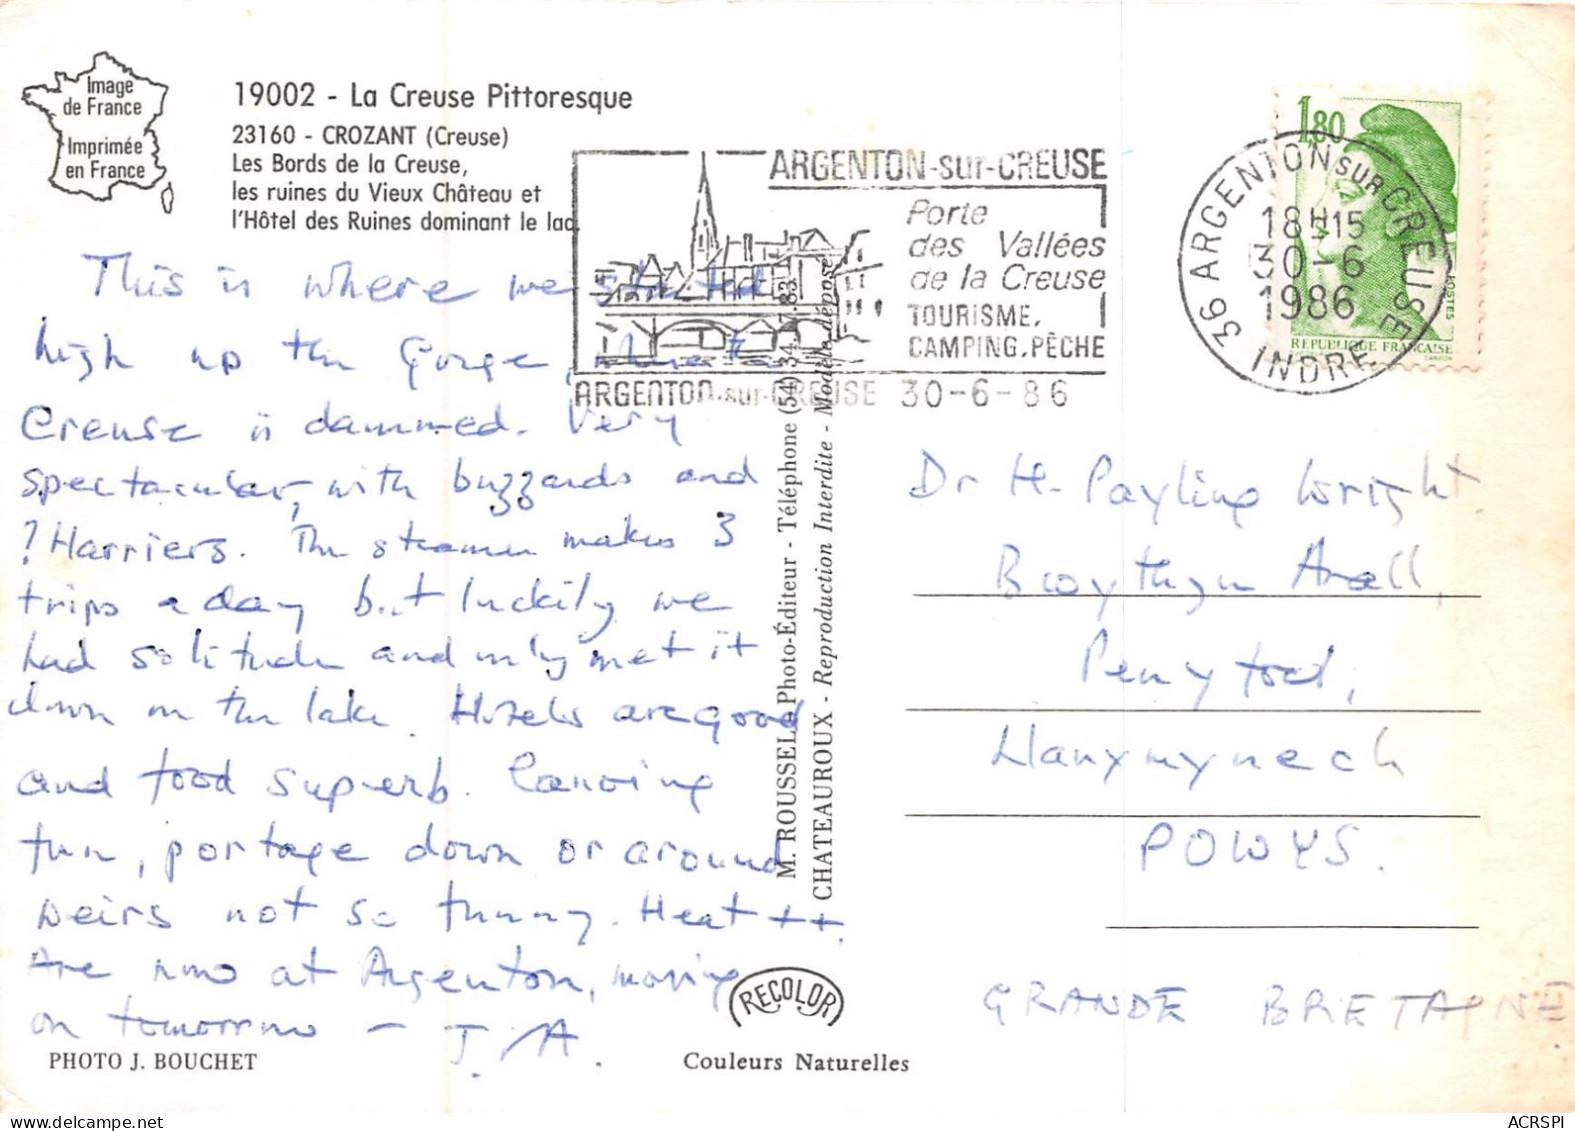 Image
de France
Imprimée
en France
19002 - La Creuse Pittoresque
23160 - CROZANT (Creuse)
Les Bords de la Creuse,
les ruines du Vieux Château et
l'Hôtel des Ruines dominant le lac.
ARGENTON-sur-CREUSE
Porte
des Vallées
de la Creuse
TOURISME,
CAMPING, PÊCHE
ARGENTON-sur-CREUSE 30-6-86
36 ARGENTON SUR CREUSE
18H15
30-6
1986
INDRE
1,80
POSTES
REPUBLIQUE FRANÇAISE
This is where we started
high up the Gorge, where the
Creuse is dammed. Very
spectacular, with buzzards and
? Harriers. The steamer makes 3
trips a day but luckily we
had solitude and only met it
down on the lake. Hotels are good
and food superb. Canoeing
fun, portage down or around
weirs not so funny. Heat ++.
Are now at Argenton, moving
on tomorrow - J. / A.
PHOTO J. BOUCHET
M. ROUSSEL, Photo-Éditeur - Téléphone (54) 34.17.83
CHATEAUROUX - Reproduction Interdite - Modèle déposé
RECOLOR
Couleurs Naturelles
Dr H. Payling Wright
Hall,
Llanymynech
POWYS.
GRANDE BRETAGNE
ACRSPI